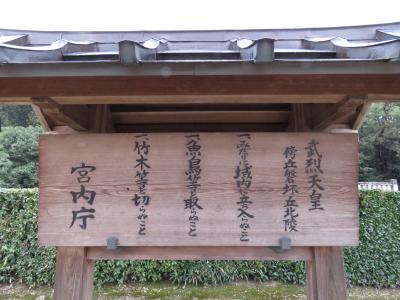 武烈天皇
傍丘磐坏丘北陵
一、みだりに域内に立ち入らぬこと
一、魚鳥等を取らぬこと
一、竹木等を切らぬこと
宮内庁